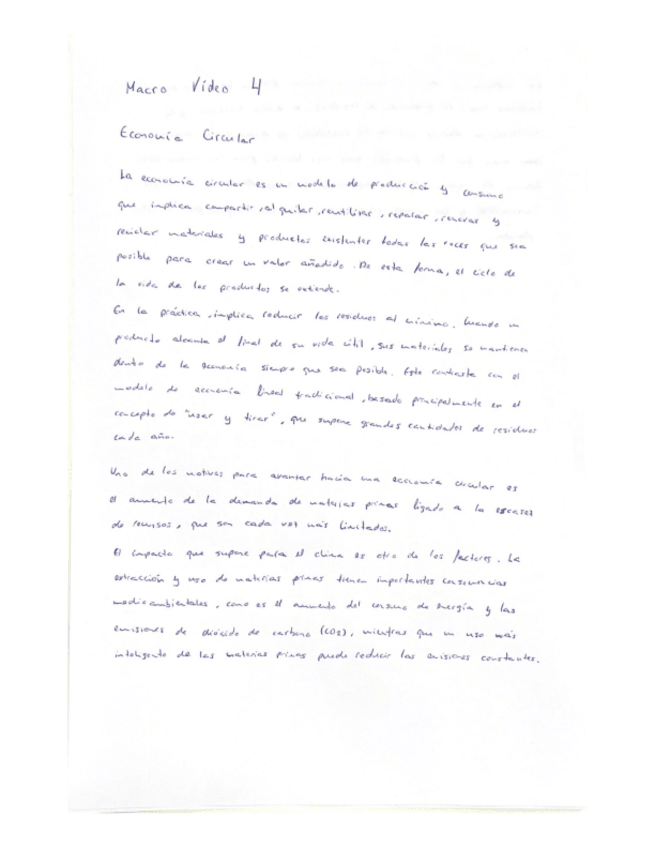 Macro Vídeo 4
Economía Circular
La economía circular es un modelo de producción y consumo
que implica compartir, alquilar, reutilizar, reparar, renovar y
reciclar materiales y productos existentes todas las veces que sea
posible para crear un valor añadido. De esta forma, el ciclo de
la vida de los productos se extiende.
En la práctica, implica reducir los residuos al mínimo. Cuando un
producto alcanza el final de su vida útil, sus materiales se mantienen
dentro de la economía siempre que sea posible. Esto contrasta con el
modelo de economía lineal tradicional, basado principalmente en el
concepto de "usar y tirar", que supone grandes cantidades de residuos
cada año.
Uno de los motivos para avanzar hacia una economía circular es
el aumento de la demanda de materias primas ligado a la escasez
de recursos, que son cada vez más limitados.
El impacto que supone para el clima es otro de los factores. La
extracción y uso de materias primas tienen importantes consecuencias
medioambientales, como es el aumento del consumo de energía y las
emisiones de dióxido de carbono (CO2), mientras que un uso más
inteligente de las materias primas puede reducir las emisiones constantes.